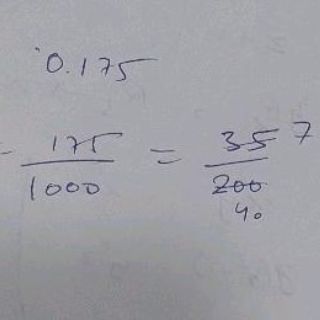 0.175
= 175/1000 = 35/200 7
40